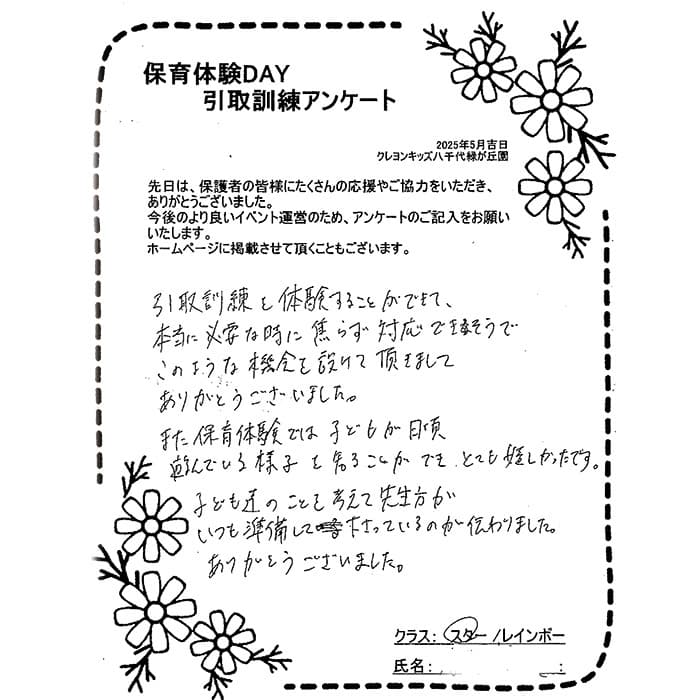 保育体験DAY
引取訓練アンケート
2025年5月吉日
クレヨンキッズ八千代緑が丘園
先日は、保護者の皆様にたくさんの応援やご協力をいただき、
ありがとうございました。
今後のより良いイベント運営のため、アンケートのご記入をお願い
いたします。
ホームページに掲載させて頂くこともございます。
引取訓練を体験することができて、
本当に必要な時に焦らず対応できそうで
このような機会を設けて頂きまして
ありがとうございました。
また保育体験では子どもが日頃
遊んでいる様子を知ることができ、とても嬉しかったです。
子ども達のことを考えて先生方が
いつも準備して下さっているのが伝わりました。
ありがとうございました。
クラス: スター /レインボー
氏名: